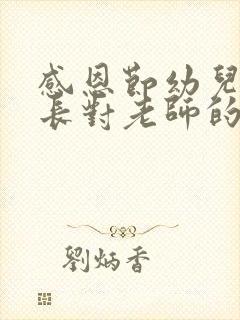 感恩節幼兒
長對老師的
劉炳香